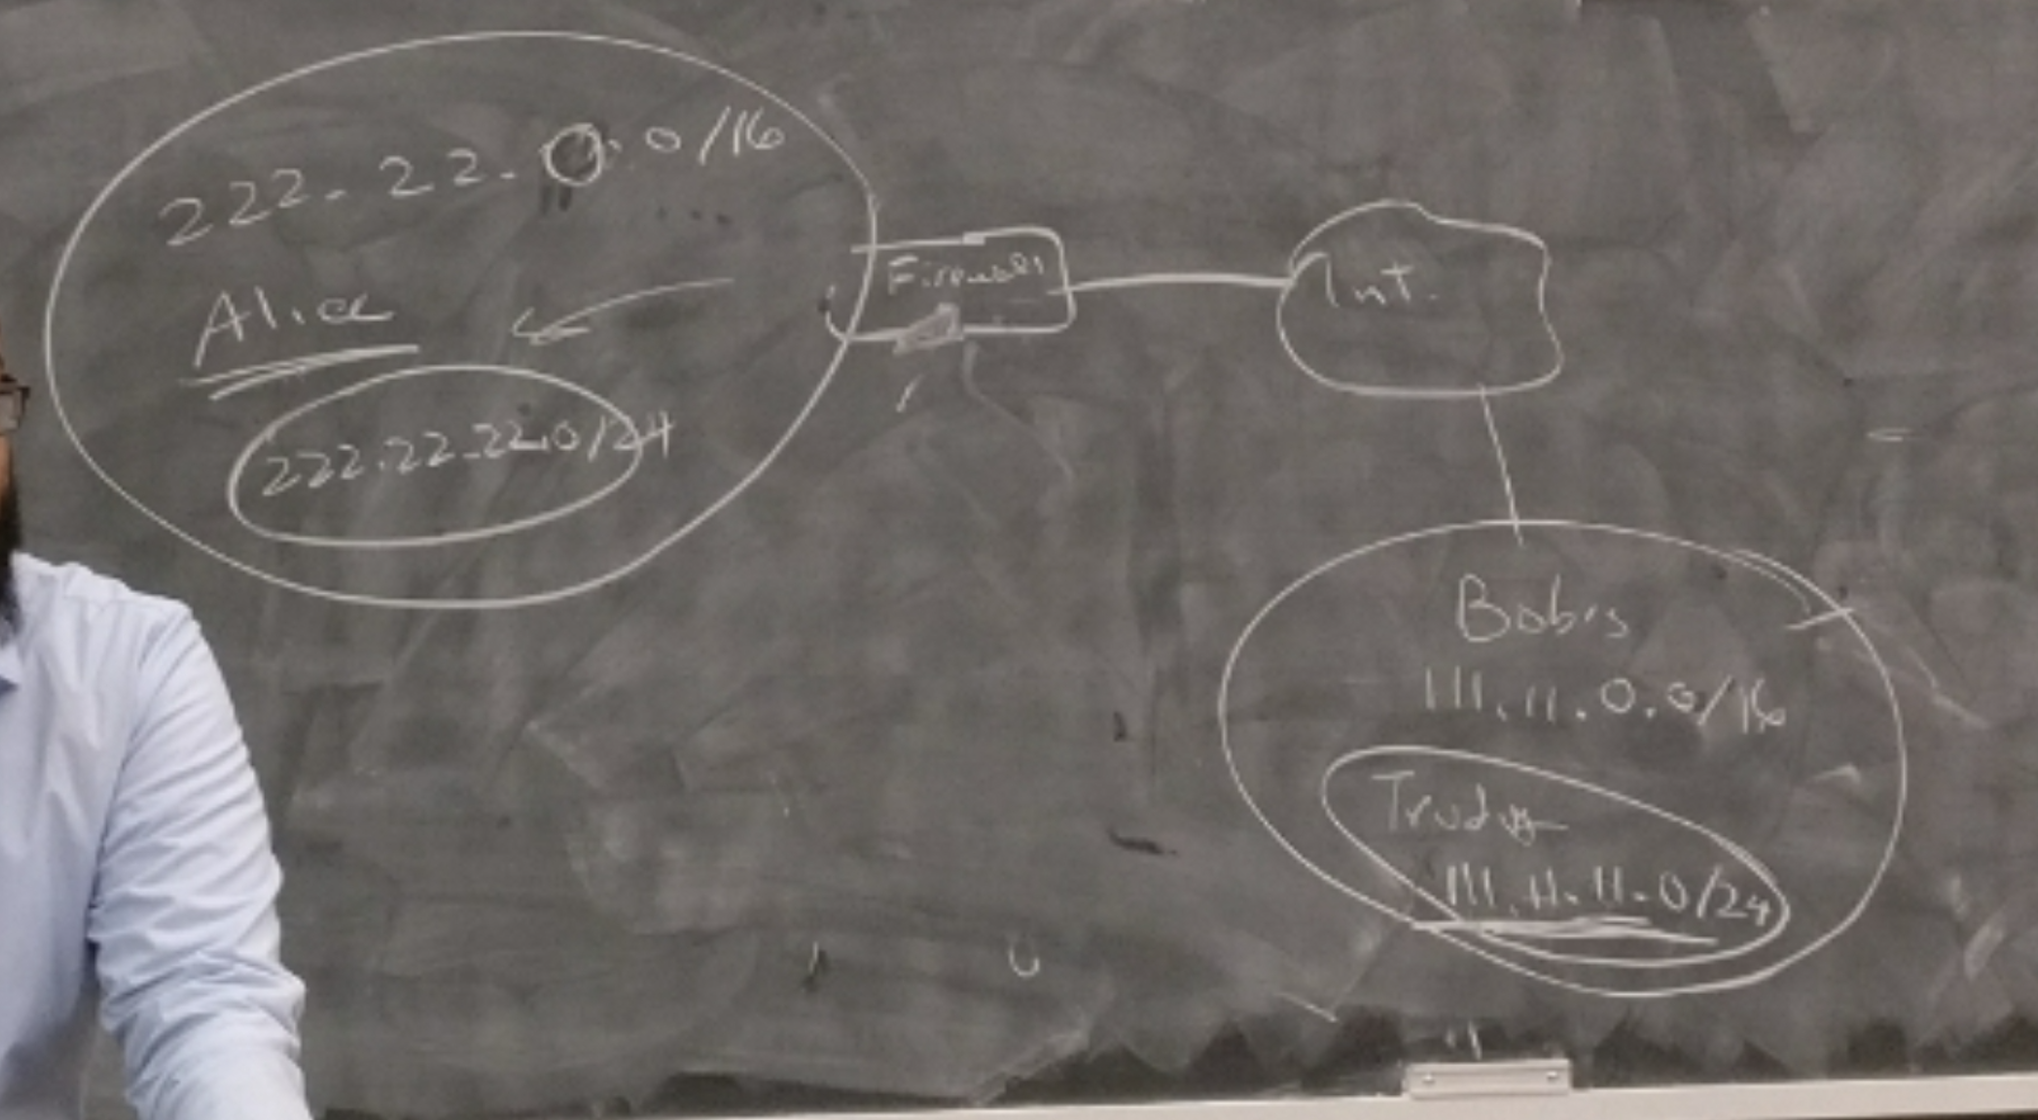 222.22.0.0/16
Alice
222.22.22.0/24
Firewall
Int.
Bob's
111.11.0.0/16
Trudy
111.11.11.0/24